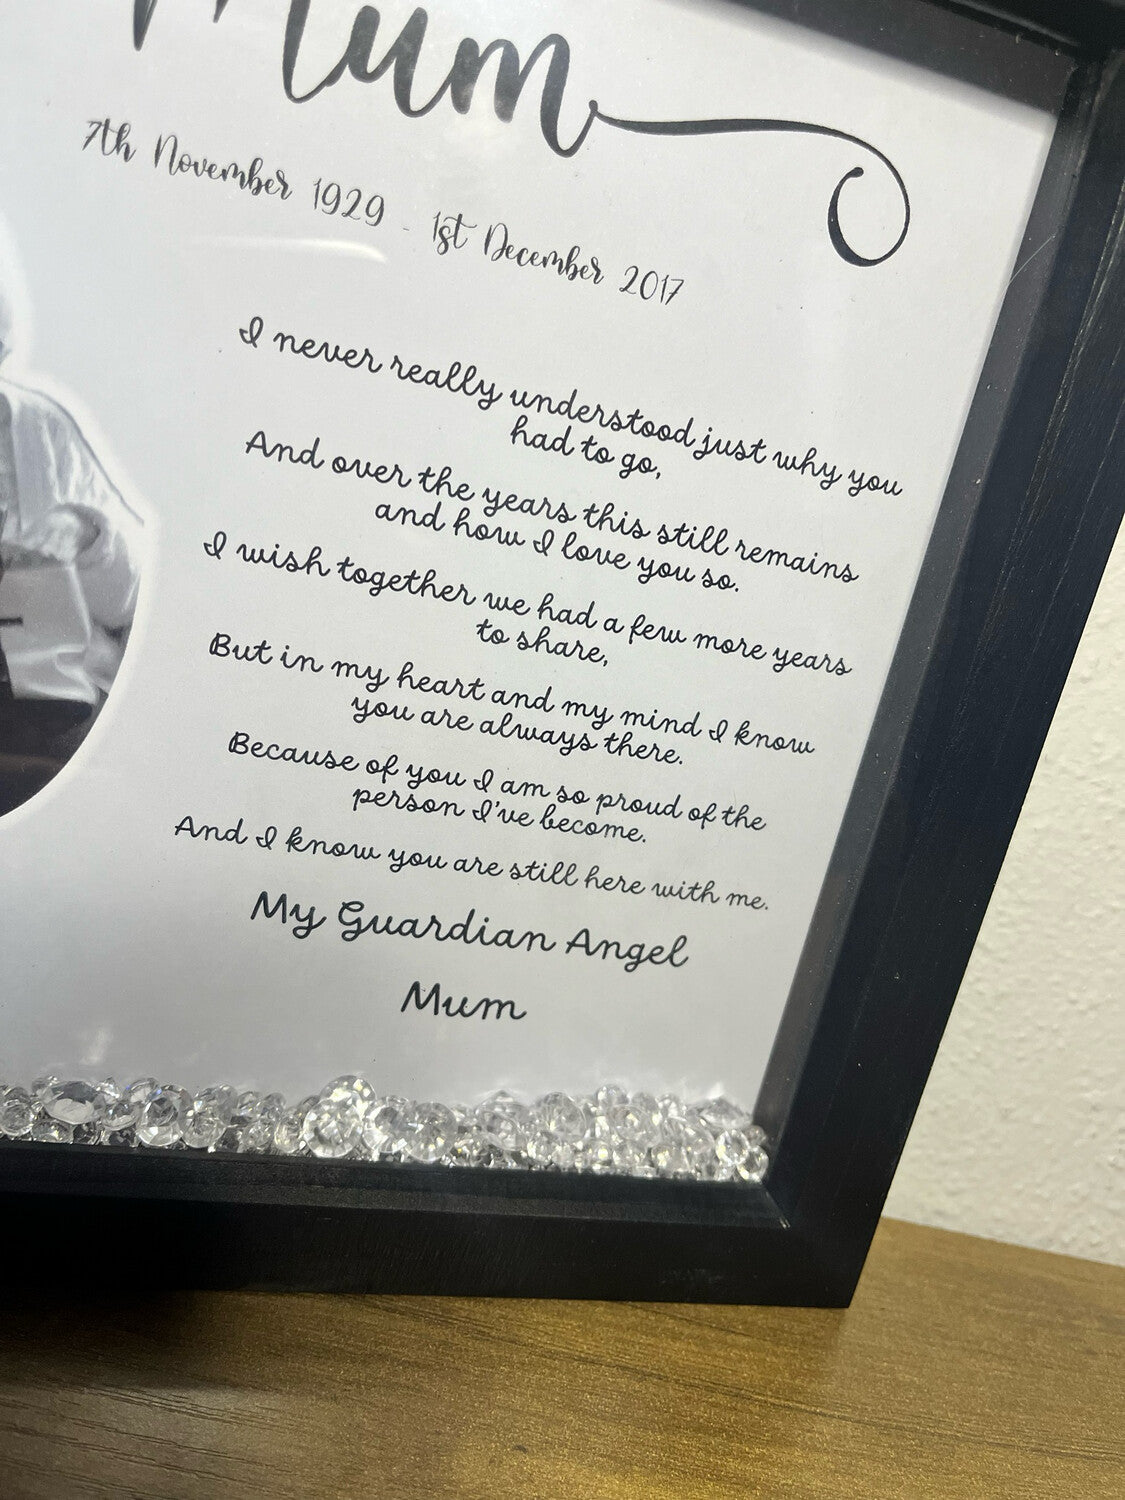 Mum
7th November 1929 - 1st December 2017
I never really understood just why you
had to go,
And over the years this still remains
and how I love you so.
I wish together we had a few more years
to share,
But in my heart and my mind I know
you are always there.
Because of you I am so proud of the
person I've become.
And I know you are still here with me.
My Guardian Angel
Mum